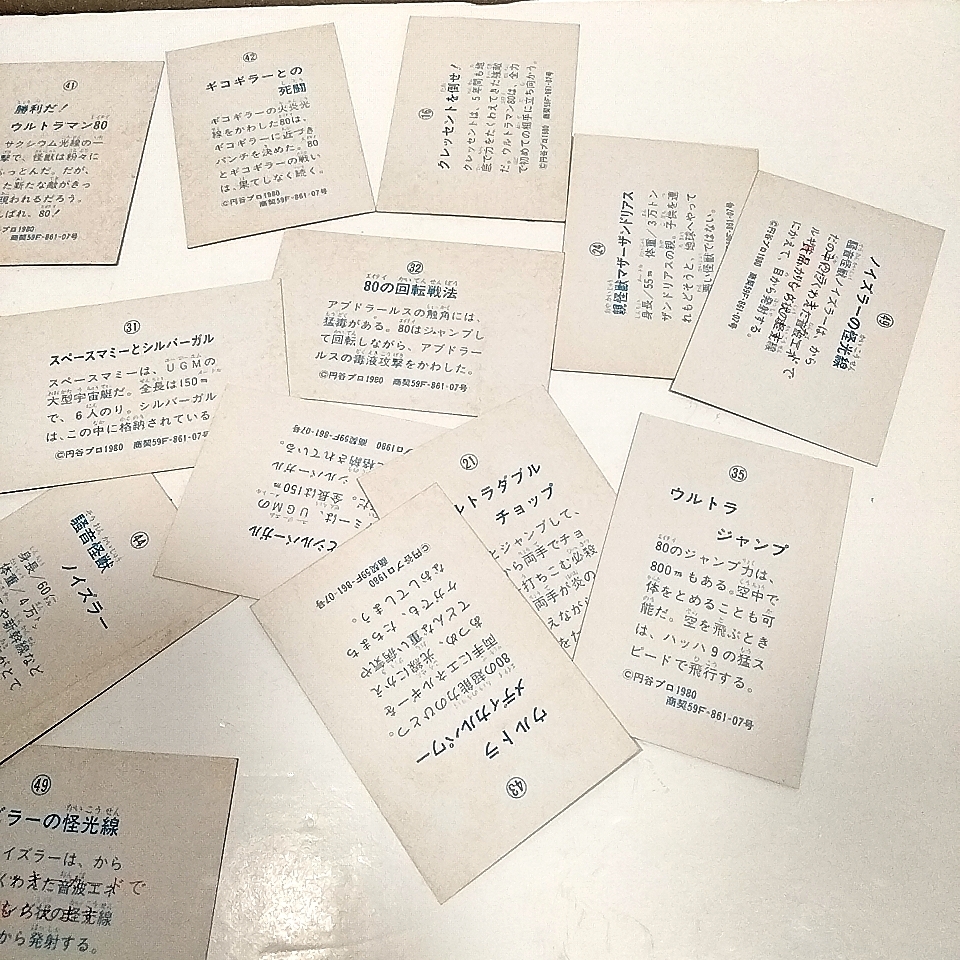 41
勝利だ!
ウルトラマン80
サクシウム光線の一
撃で、怪獣は粉々に
ふっとんだ。だが、
た新たな敵がきっ
現われるだろう。
ばれ、80!
プロ1980
商契59F-861-07号
42
ギコギラーとの
死闘
ギコギラーの火炎光
線をかわした80は、
ギコギラーに近づき
パンチを決めた。80
とギコギラーの戦い
は、果てしなく続く。
©円谷プロ1980
商契59F-861-07号
16
クレッセントを倒せ!
クレッセントは、5年間も地
底で力をたくわえてきた強敵
だ。ウルトラマン80は、全力
で初めての相手に立ち向かう。
©円谷プロ1980 商契59F-861-07号
24
親怪獣マザーザンドリアス
身長/55m 体重/3万トン
ザンドリアスの親。子供を連
れもどそうと、地球へやって
悪い怪獣ではない。
商契59F-861-07号
49
ノイズラーの怪光線
騒音怪獣ノイズラーは、から
だの中にたくわえた音波エネ
にかえて、目から発射する。
©円谷プロ1980
商契59F-861-07号
32
80の回転戦法
アブドラールスの触角には、
猛毒がある。80はジャンプし
て回転しながら、アブドラー
ルスの毒液攻撃をかわした。
©円谷プロ1980 商契59F-861-07号
31
スペースマミーとシルバーガル
スペースマミーは、UGMの
大型宇宙艇だ。全長は150m
で、6人のり。シルバーガル
は、この中に格納されている。
©円谷プロ1980 商契59F-861-07号
とシルバーガル
ミーは、UGMの
だ。全長は150m
シルバーガル
に格納されている。
プロ1980 商契59F-861-07号
21
ルトラダブル
チョップ
とジャンプして、
から両手でチョ
打ちこむ必殺
両手が炎の
えなが
35
ウルトラ
ジャンプ
80のジャンプ力は、
800mもある。空中で
体をとめることも可
能だ。空を飛ぶとき
は、ハッハ9の猛ス
ピードで飛行する。
©円谷プロ1980
商契59F-861-07号
44
騒音怪獣
ノイズラー
身長/60
体重/4万
や新幹線など
がとて
43
ウルトラ
メディカルパワー
80の超能力のひとつ。
両手にエネルギーを
あつめ、光線にかえ
てどんな重い病気や
ケガでも、たちまち
なおしてしまう。
©円谷プロ1980
商契59F-861-07号
49
ラーの怪光線
イズラーは、から
くわえた音波エネ
から発射する。